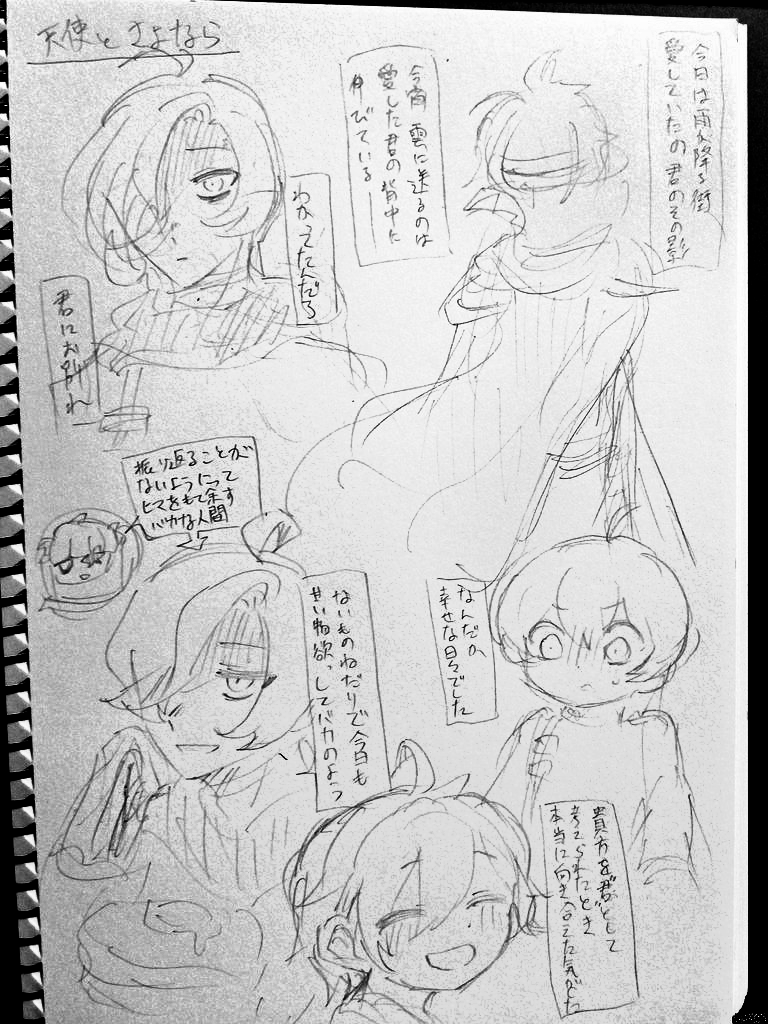 天使とさよなら
今日は雨が降る街
愛していたの君のその影
今宵 雲に送るのは
愛した君の背中に
伸びている
わかってたんだろ
君にお別れ
振り返ることが
ないようにって
ヒマをもて余す
バカな人間
なんだか
幸せな日々でした
ないものねだりで今日も
甘い物欲っしてバカのよう
貴方を君として
考えられたとき
本当に向き合えた気がした